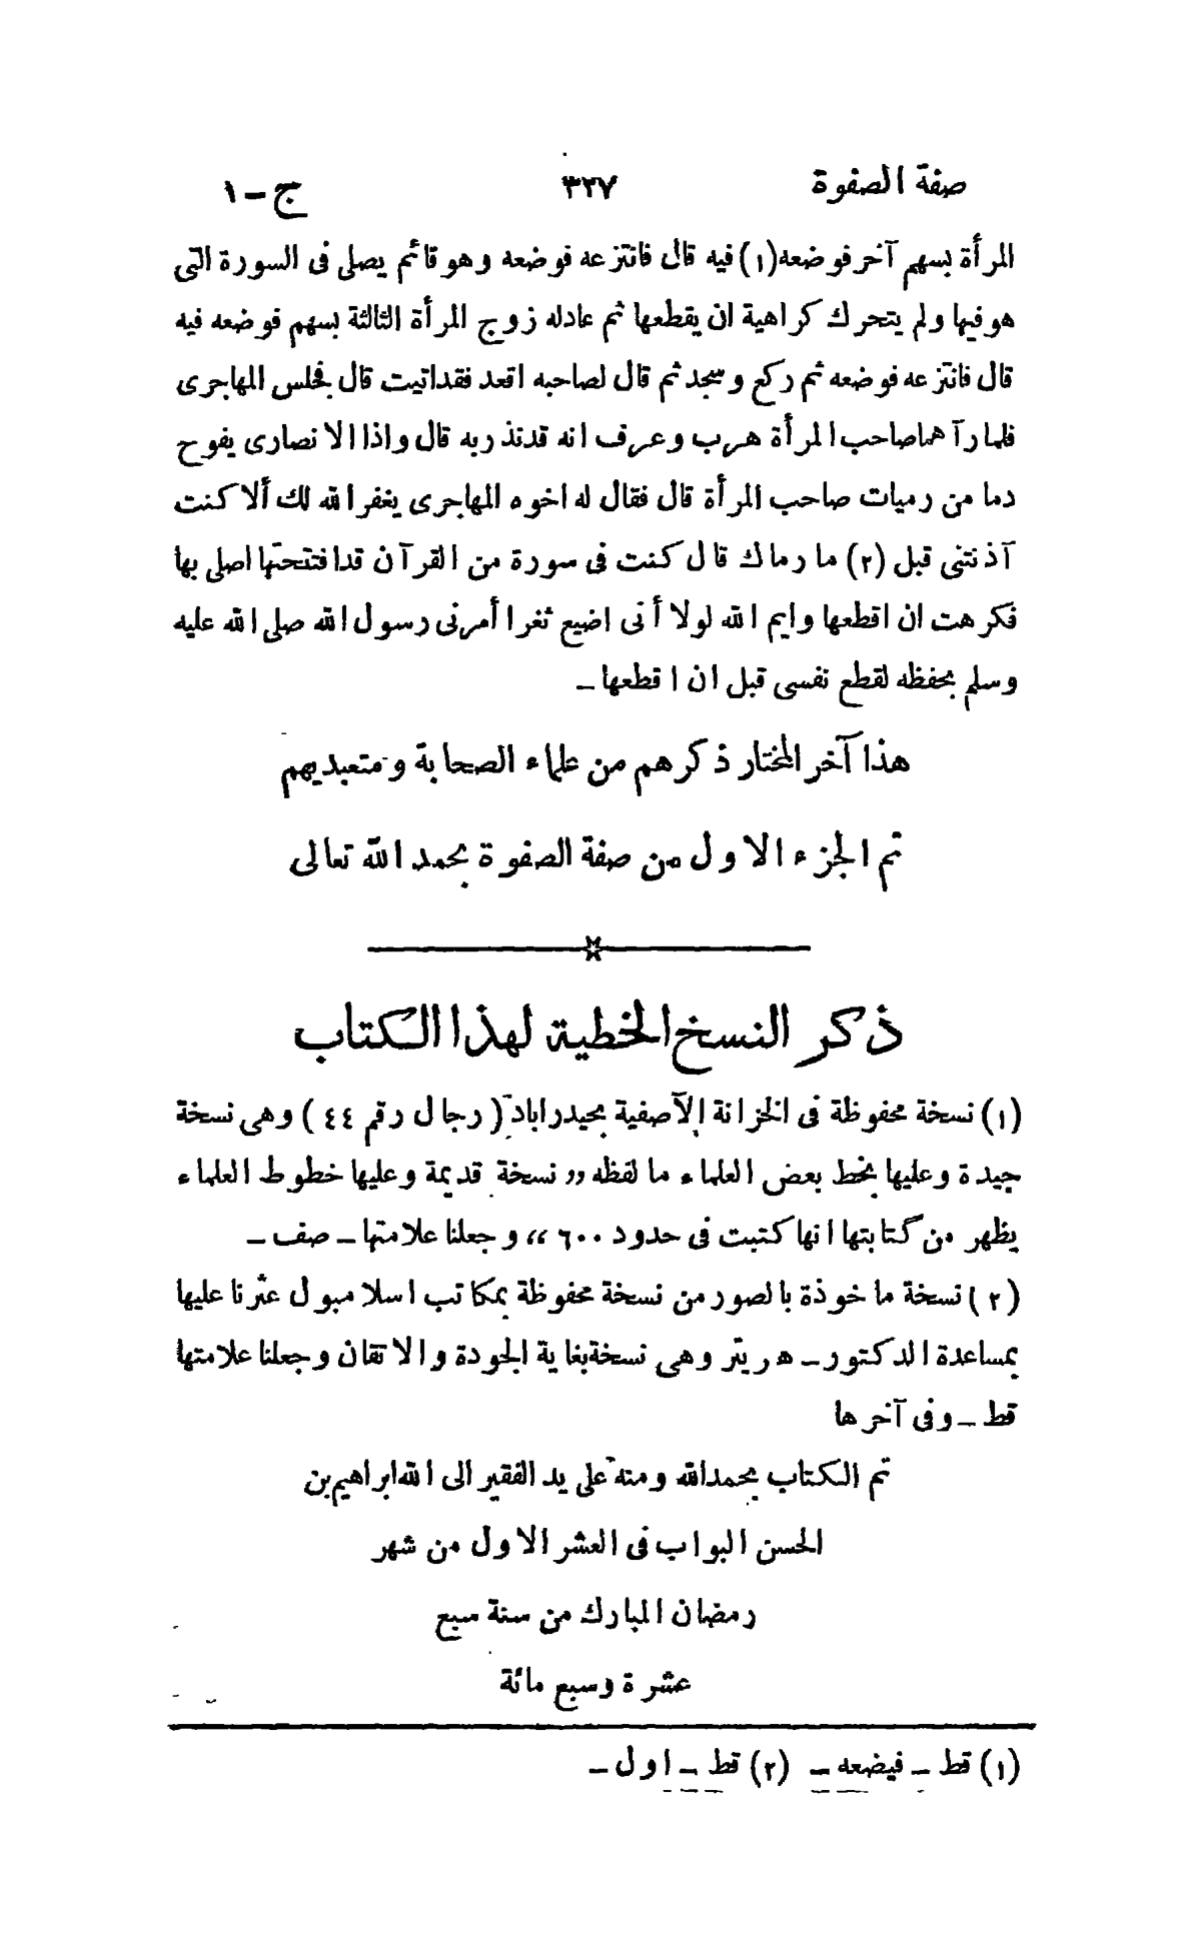 صفة الصفوة ٣٢٧ ج – ١
المرأة بسهم آخر فوضعه (١) فيه قال فانتزعه فوضعه وهو قائم يصلى فى السورة التى
هو فيها ولم يتحرك كراهية ان يقطعها ثم عادله زوج المرأة الثالثة بسهم فوضعه فيه
قال فانتزعه فوضعه ثم ركع وسجد ثم قال لصاحبه اقعد فقد اتيت قال فجلس المهاجرى
فلما رآهما صاحب المرأة هرب وعرف انه قد نذر به قال واذا الانصارى يفوح
دما من رميات صاحب المرأة قال فقال له اخوه المهاجرى يغفر الله لك ألا كنت
آذنتنى قبل (٢) ما رماك قال كنت فى سورة من القرآن قد افتتحتها اصلى بها
فكرهت ان اقطعها وايم الله لولا أنى اضيع ثغرا أمرنى رسول الله صلى الله عليه
وسلم بحفظه لقطع نفسى قبل ان اقطعها –
هذا آخر المختار ذكرهم من علماء الصحابة ومتعبديهم
تم الجزء الاول من صفة الصفوة بحمد الله تعالى
ذكر النسخ الخطية لهذا الكتاب
(١) نسخة محفوظة فى الخزانة الآصفية بحيدراباد (رجال رقم ٤٤) وهى نسخة
جيدة وعليها بخط بعض العلماء ما لفظه ,, نسخة قديمة وعليها خطوط العلماء
يظهر من كتابتها انها كتبت فى حدود ٦٠٠ ،، وجعلنا علامتها – صف –
(٢) نسخة ماخوذة بالصور من نسخة محفوظة بمكاتب اسلامبول عثرنا عليها
بمساعدة الدكتور – ه ريتر وهى نسخة بغاية الجودة والاتقان وجعلنا علامتها
قط – وفى آخرها
تم الكتاب بحمد الله ومنه على يد الفقير الى الله ابراهيم بن
الحسن البواب فى العشر الاول من شهر
رمضان المبارك من سنة سبع
عشرة وسبع مائة
(١) قط – فيضعه – (٢) قط – اول –